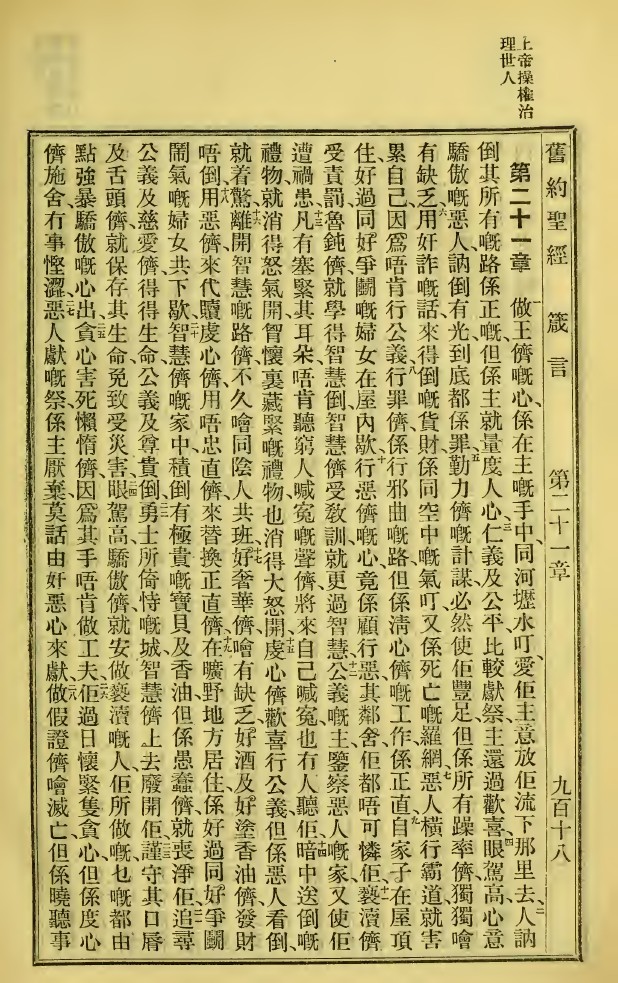 上帝操權治
理世人
舊約聖經 箴言 第二十一章 九百十八
第二十一章 一做王儕嘅心係在主嘅手中、同河壢水叮、愛佢主意放佢流下那里去、二人訥
倒其所有嘅路係正嘅但係主就量度人心、三仁義及公平比較獻祭主還過歡喜、四眼駕高心意
驕傲嘅惡人訥倒有光到底都係罪、五勤力儕嘅計謀必然使佢豐足但係所有躁率儕獨獨噲
有缺乏、六用奸詐嘅話來得倒嘅貨財係同空中嘅氣叮又係死亡嘅羅網、七惡人橫行霸道就害
累自己因爲唔肯行公義、八行罪儕係行邪曲嘅路但係淸心儕嘅工作係正直、九自家子在屋頂
住、好過同好爭鬭嘅婦女在屋內歇、十行惡儕嘅心竟係顧行惡其鄰舍佢都唔可憐、十一佢褻瀆儕
受責罰魯鈍儕就學得智慧倒智慧儕受教訓就更過智慧、十二公義嘅主鑒察惡人嘅家又使佢
遭禍患、十三凡有塞緊其耳朵唔肯聽窮人喊冤嘅聲儕將來自己喊冤也冇人聽佢、十四暗中送倒嘅
禮物就消得怒氣開胷懷裏藏緊嘅禮物也消得大怒開、十五虔心儕歡喜行公義但係惡人看倒
就着驚、十六離開智慧嘅路儕不久噲同陰人共班、十七好奢華儕噲有缺乏、好酒及好塗香油儕發財
唔倒、十八用惡儕來代贖虔心儕用唔忠直儕來替換正直儕、十九在曠野地方居住係好過同好爭鬭
鬧氣嘅婦女共下歇、二十智慧儕嘅家中積倒有極貴嘅寶貝及香油但係愚蠢儕就喪淨佢、二一追尋
公義及慈愛儕得得生命公義及尊貴倒、二二勇士所倚恃嘅城智慧儕上去廢開佢、二三謹守其口脣
及舌頭儕就保存其生命免致受災害、二四眼駕高驕傲儕就安做褻瀆嘅人佢所做嘅乜嘅都由
點強暴驕傲嘅心出、二五貪心害死懶惰儕因爲其手唔肯做工夫、二六佢過日懷緊隻貪心但係虔心
儕施舍冇事慳澀、二七惡人獻嘅祭係主厭棄莫話由奸惡心來獻、二八做假證儕噲滅亡但係曉聽事